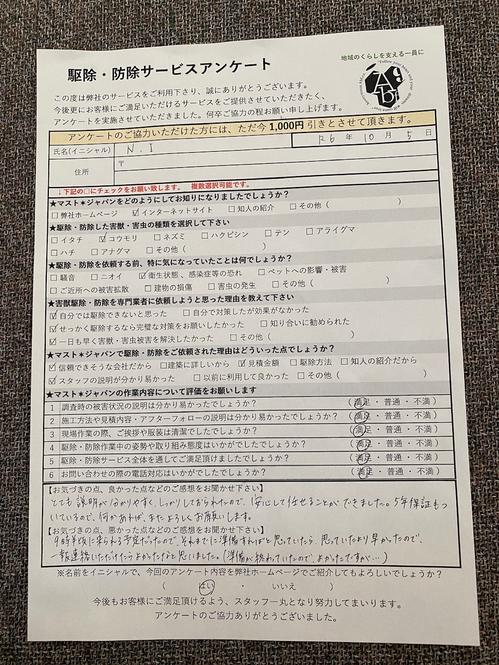 地域のくらしを支える一員に
駆除・防除サービスアンケート
この度は弊社のサービスをご利用下さり、誠にありがとうございます。
今後更にお客様にご満足いただけるサービスをご提供させていただきたく、
アンケートを実施させていただきました。何卒ご協力の程お願い申し上げます。
アンケートのご協力いただけた方には、ただ今1,000円引きとさせて頂きます。
R6年10月5日
氏名(イニシャル) N.I
住所 〒
↓下記の□にチェックをお願い致します。 複数選択可能です。
★マスト★ジャパンをどのようにしてお知りになりましたでしょうか?
□弊社ホームページ ☑インターネットサイト □知人の紹介 □その他( )
★駆除・防除した害獣・害虫の種類を選択して下さい
□イタチ ☑コウモリ □ネズミ □ハクビシン □テン □アライグマ
□ハチ □アナグマ □その他( )
★駆除・防除を依頼する前、特に気になっていたことは何でしょうか?
□騒音 □ニオイ ☑衛生状態、感染症等の恐れ □ペットへの影響・被害
□ご近所への被害拡散 □建物の損傷 □害虫の発生 □その他( )
★害獣駆除・防除を専門業者に依頼しようと思った理由を教えて下さい
☑自分では駆除できないと思った □自分で対策したが効果がなかった
☑せっかく駆除するなら完璧な対策をお願いしたかった □知り合いに勧められた
☑一日も早く害獣・害虫被害を解決したかった □その他( )
★マスト★ジャパンで駆除・防除をご依頼された理由はどういった点でしょうか?
☑信頼できそうな会社だから □建築に詳しいから ☑見積金額 □駆除方法 □知人の紹介だから
☑スタッフの説明が分かり易かった □以前に利用して良かった □その他( )
★マスト★ジャパンの作業内容について評価をお願いします
1 調査時の被害状況の説明は分かり易かったでしょうか? (満足・普通・不満)
2 施工方法や見積内容・アフターフォローの説明は分かり易かったでしょうか? (満足・普通・不満)
3 現場作業の際、ご挨拶や服装は清潔でしたでしょうか? (満足・普通・不満)
4 駆除・防除作業中の姿勢や取り組み態度はいかがでしたでしょうか? (満足・普通・不満)
5 駆除・防除サービス全体を通してご満足頂けましたでしょうか? (満足・普通・不満)
6 お問い合わせの際の電話対応はいかがでしたでしょうか? (満足・普通・不満)
【お気づきの点、良かった点などのご感想をお聞かせ下さい】
とても説明が分かりやすく、しっかりしておられたので、安心して任せることができました。5年保証も
ついているので、何かあれば、またよろしくお願いします。
【お気づきの点、悪かった点などのご感想をお聞かせ下さい】
9時半頃に来られる予定だったので、それまでに準備すればと思っていたら、思っていたより早かったので、
一報連絡いただけたらよかったなと思いました。(準備が終わっていたので、よかったですが…)
※名前をイニシャルで、今回のアンケート内容を弊社ホームページでご紹介してもよろしいでしょうか?
( はい ・ いいえ )
今後もお客様にご満足頂けるよう、スタッフ一丸となり努力してまいります。
アンケートのご協力ありがとうございました。